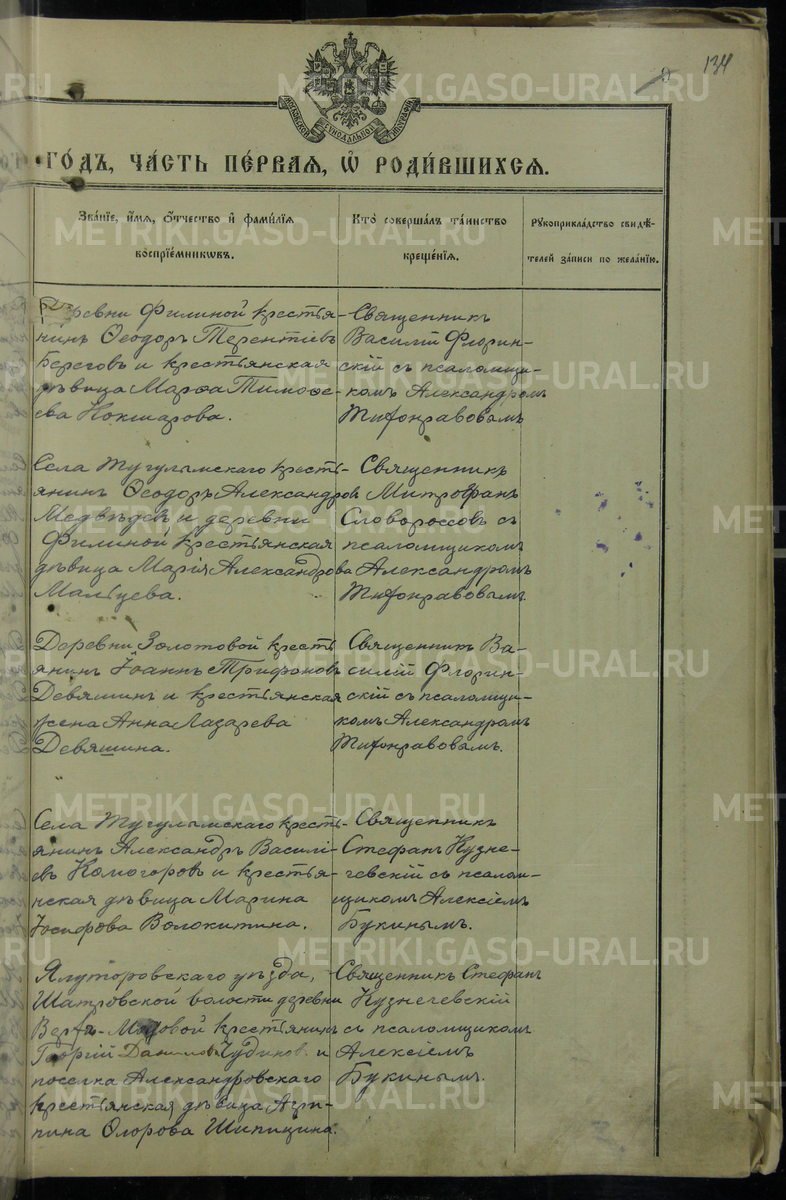 134
МОСКОВСКОЙ СѴНОДАЛЬНОЙ ТИПОГРАФІИ
ГО́ДЪ, ЧА́СТЬ ПЕ́РВАЯ, Ѡ҆ РОДИ́ВШИХСЯ.
Зва́нїе, и҆́мя, ѻ҆́тчество и҆ фами́лїя
воспрїе́мникѡвъ.
Кто̀ соверша́лъ та́инство
креще́нїя.
Рꙋкоприкла́дство свидѣ́-
телей за́писи по жела́нїю.
Деревни Филиной крестья-
нинъ Ѳеодоръ Терентіевъ
Береговъ и крестьянская
дѣвица Марѳа Тимоѳе-
ева Кокшарова.
Священникъ
Василій Флорин-
скій съ псаломщи-
комъ Александромъ
Тихонравовымъ
Села Тугулымскаго кресть-
янинъ Ѳеодоръ Александровъ
Медвѣдевъ и деревни
Филиной крестьянская
дѣвица Марія Александрова
Мальцева.
Священникъ
Митрофанъ
Словороссовъ съ
псаломщикомъ
Александромъ
Тихонравовымъ
Деревни Золотовой кресть
янинъ Іоаннъ Трифоновъ
Девяшинъ и крестьянская
жена Анна Лазарева
Девяшина.
Священникъ Ва-
силій Флорин-
скій съ псаломщи-
комъ Александромъ
Тихонравовымъ.
Села Тугулымскаго кресть-
янинъ Александръ Василі-
евъ Комогоровъ и крестья-
нская дѣвица Марина
Іосифова Волокитина.
Священникъ
Стефанъ Кузне-
чевскій съ псалом-
щикомъ Алексіемъ
Букинымъ.
Ялуторовскаго уѣзда,
Шатровской волости деревни
крестьянинъ
Георгій Даниловъ Чудиновъ и
поселка Александровскаго
крестьянская дѣвица Агри-
пина Ѳлорова Шипицина.
Священникъ Стефанъ
Кузнечевскій
съ псаломщикомъ
Алексіемъ
Букинымъ.
METRIKI.GASO-URAL.RU